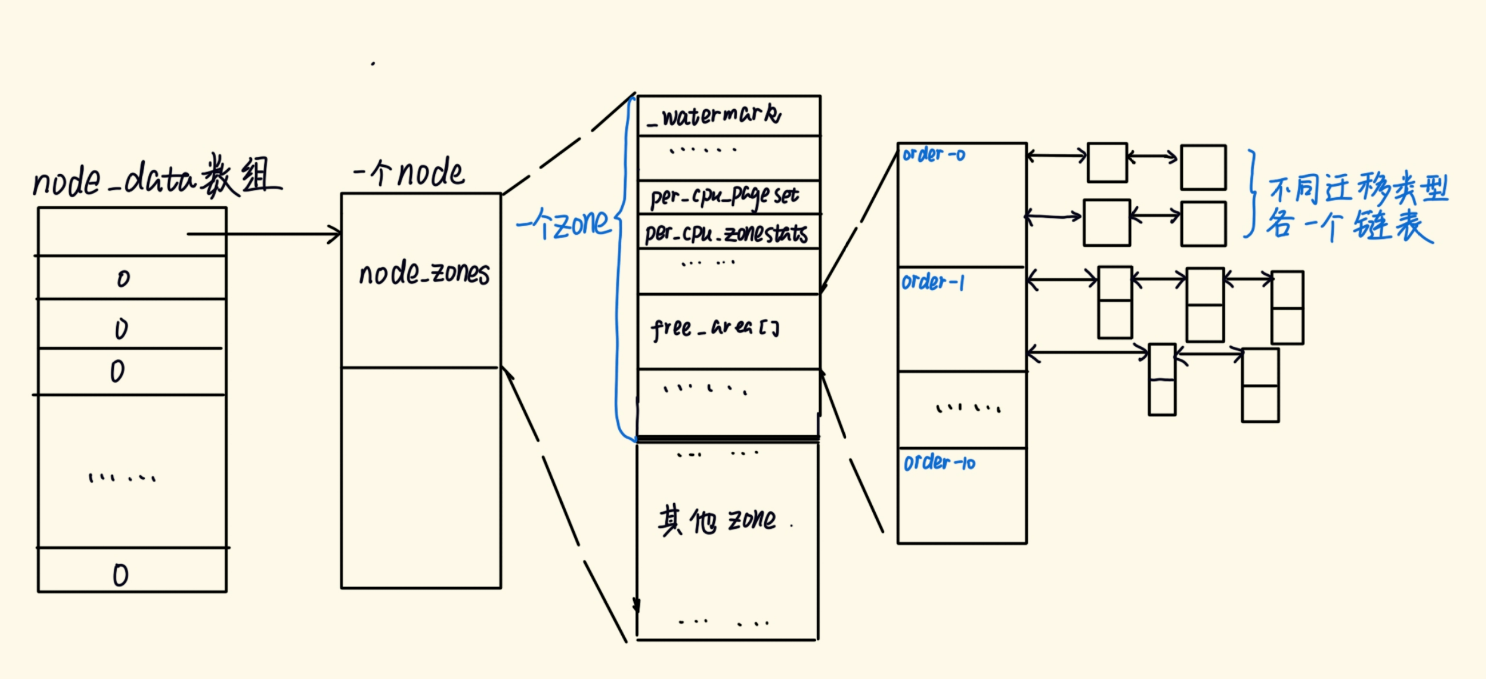 node_data数组
0
0
0
......
0
一个node
node_zones
一个zone
_watermark
......
per_cpu_pageset
per_cpu_zonestats
... ...
free_area[]
......
... ...
其他zone
... ...
order-0
order-1
......
order-10
不同迁移类型
各一个链表